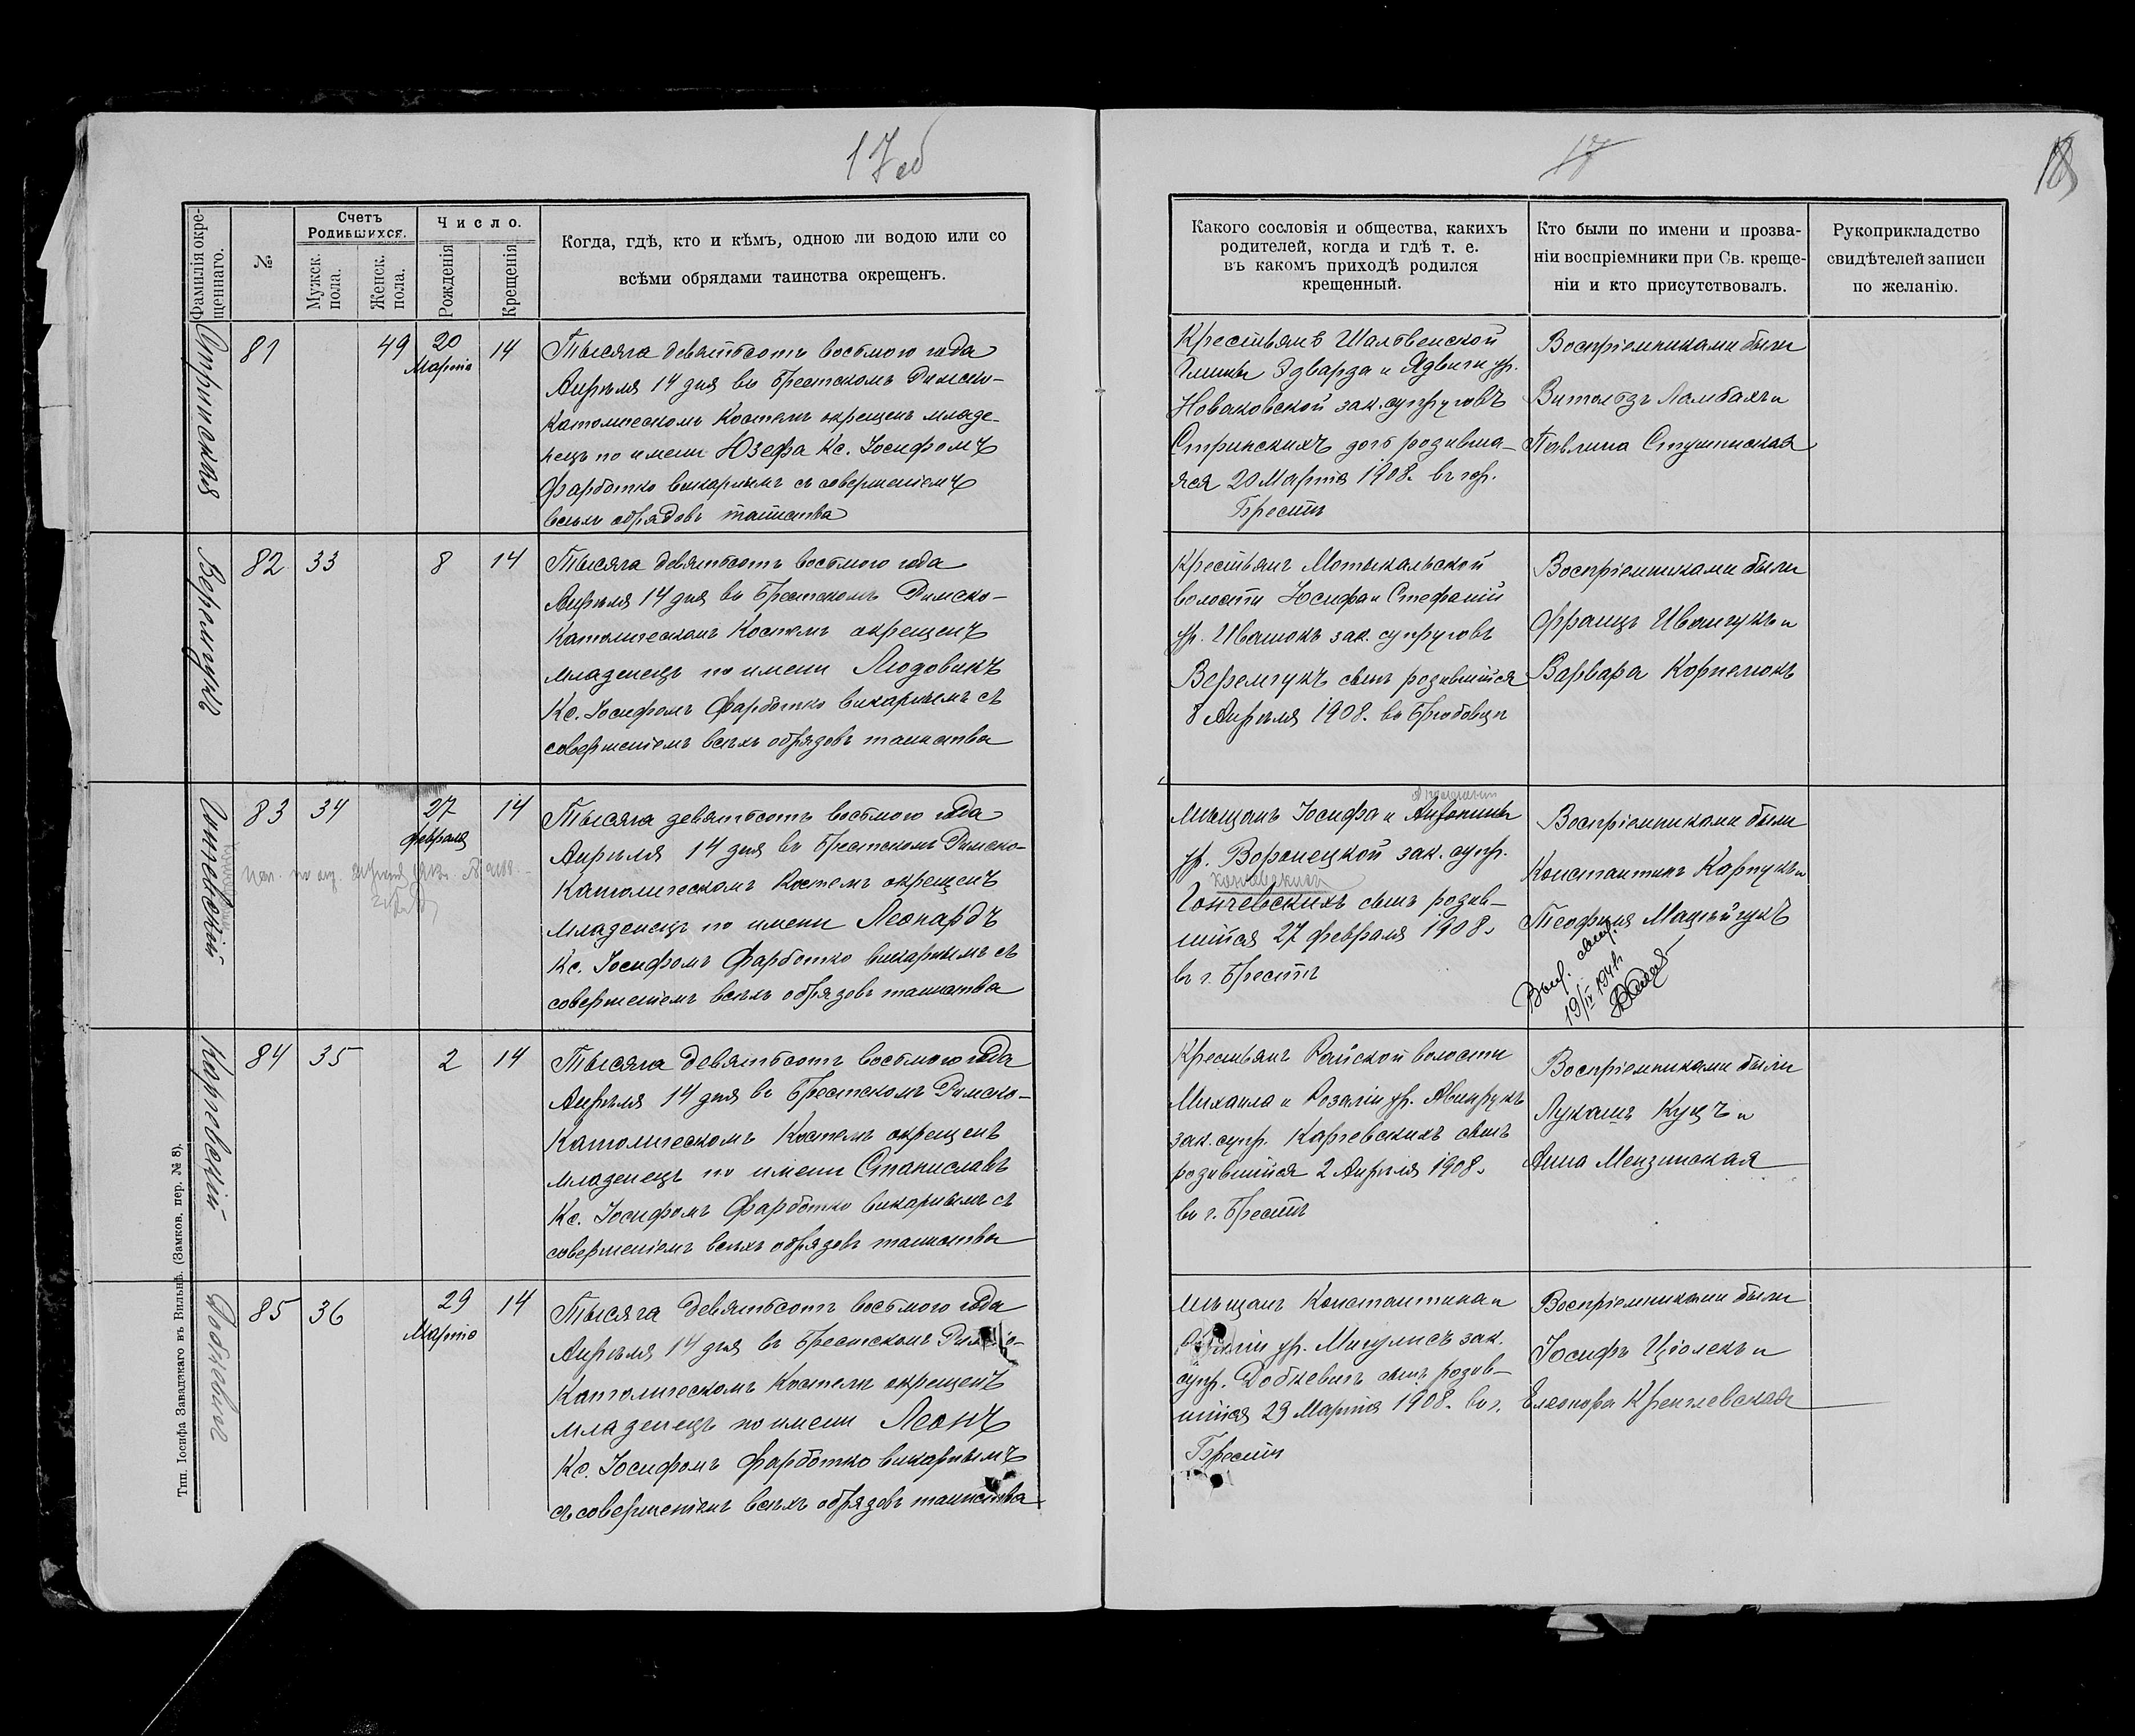 17об
17
18
Фамилія окре-
щеннаго.
№
Счетъ
Родившихся.
Мужск.
пола.
Женск.
пола.
Число.
Рожденія
Крещенія
Когда, гдѣ, кто и кѣмъ, одною ли водою или со
всѣми обрядами таинства окрещенъ.
Какого сословія и общества, какихъ
родителей, когда и гдѣ т. е.
въ какомъ приходѣ родился
крещенный.
Кто были по имени и прозва-
ніи воспріемники при Св. креще-
ніи и кто присутствовалъ.
Рукоприкладство
свидѣтелей записи
по желанію.
81
49
20
Марта
14
Тысяча девятьсотъ восьмого года
Апрѣля 14 дня въ Брестскомъ Римско-
Католическомъ Костелѣ окрещенъ младе-
нецъ по имени Юзефа Кс. Іосифомъ
Фарботко викарнымъ съ совершеніемъ
всѣхъ обрядовъ таинства
Крестьянъ
Гмины Эдварда и Ядвиги ур.
Новаковской зак. супруговъ
дочь родивша-
яся 20 Марта 1908. въ гор.
Брестѣ
Воспріемниками были
Витольдъ Ламбахъ и
Павлина
Веремчукъ
82
33
8
14
Тысяча девятьсотъ восьмого года
Апрѣля 14 дня въ Брестскомъ Римско-
Католическомъ Костелѣ окрещенъ
младенецъ по имени Людовикъ
Кс. Іосифомъ Фарботко викарнымъ съ
совершеніемъ всѣхъ обрядовъ таинства
Крестьянъ Мотыкальской
волости Іосифа и Стефаніи
ур. Ивашокъ зак. супруговъ
Веремчукъ сынъ родившійся
8 Апрѣля 1908. въ
Воспріемниками были
Францъ Иванчукъ и
Варвара Корнелюкъ
Гончевскій
83
34
27
февраля
14
Тысяча девятьсотъ восьмого года
Апрѣля 14 дня въ Брестскомъ Римско-
Католическомъ Костелѣ окрещенъ
младенецъ по имени Леонардъ
Кс. Іосифомъ Фарботко викарнымъ съ
совершеніемъ всѣхъ обрядовъ таинства
Мѣщанъ Іосифа и Антонины
ур. Воронецкой зак. супр.
Гончевскихъ сынъ родив-
шійся 27 февраля 1908.
въ г. Брестѣ
Воспріемниками были
Константинъ Карпукъ и
Теофиля Мацѣйчукъ
19/IV 1941
Карчевскій
84
35
2
14
Тысяча девятьсотъ восьмого года
Апрѣля 14 дня въ Брестскомъ Римско-
Католическомъ Костелѣ окрещенъ
младенецъ по имени Станиславъ
Кс. Іосифомъ Фарботко викарнымъ съ
совершеніемъ всѣхъ обрядовъ таинства
Крестьянъ Райской волости
Михаила и Розаліи ур.
зак. супр. Карчевскихъ сынъ
родившійся 2 Апрѣля 1908.
въ г. Брестѣ
Воспріемниками были
Лукашъ Куцъ и
Анна Мензинская
Добкевичъ
85
36
29
Марта
14
Тысяча девятьсотъ восьмого года
Апрѣля 14 дня въ Брестскомъ Римско-
Католическомъ Костелѣ окрещенъ
младенецъ по имени Леонъ
Кс. Іосифомъ Фарботко викарнымъ
съ совершеніемъ всѣхъ обрядовъ таинства
Мѣщанъ Константина и
ур. Мигулисъ зак.
супр. Добкевичъ сынъ родив-
шійся 29 Марта 1908. въ г.
Брестѣ
Воспріемниками были
Іосифъ Ціолекъ и
Елеонора Кренглевская
Тип. Іосифа Завадзкаго въ Вильнѣ. (Замков. пер. № 8).